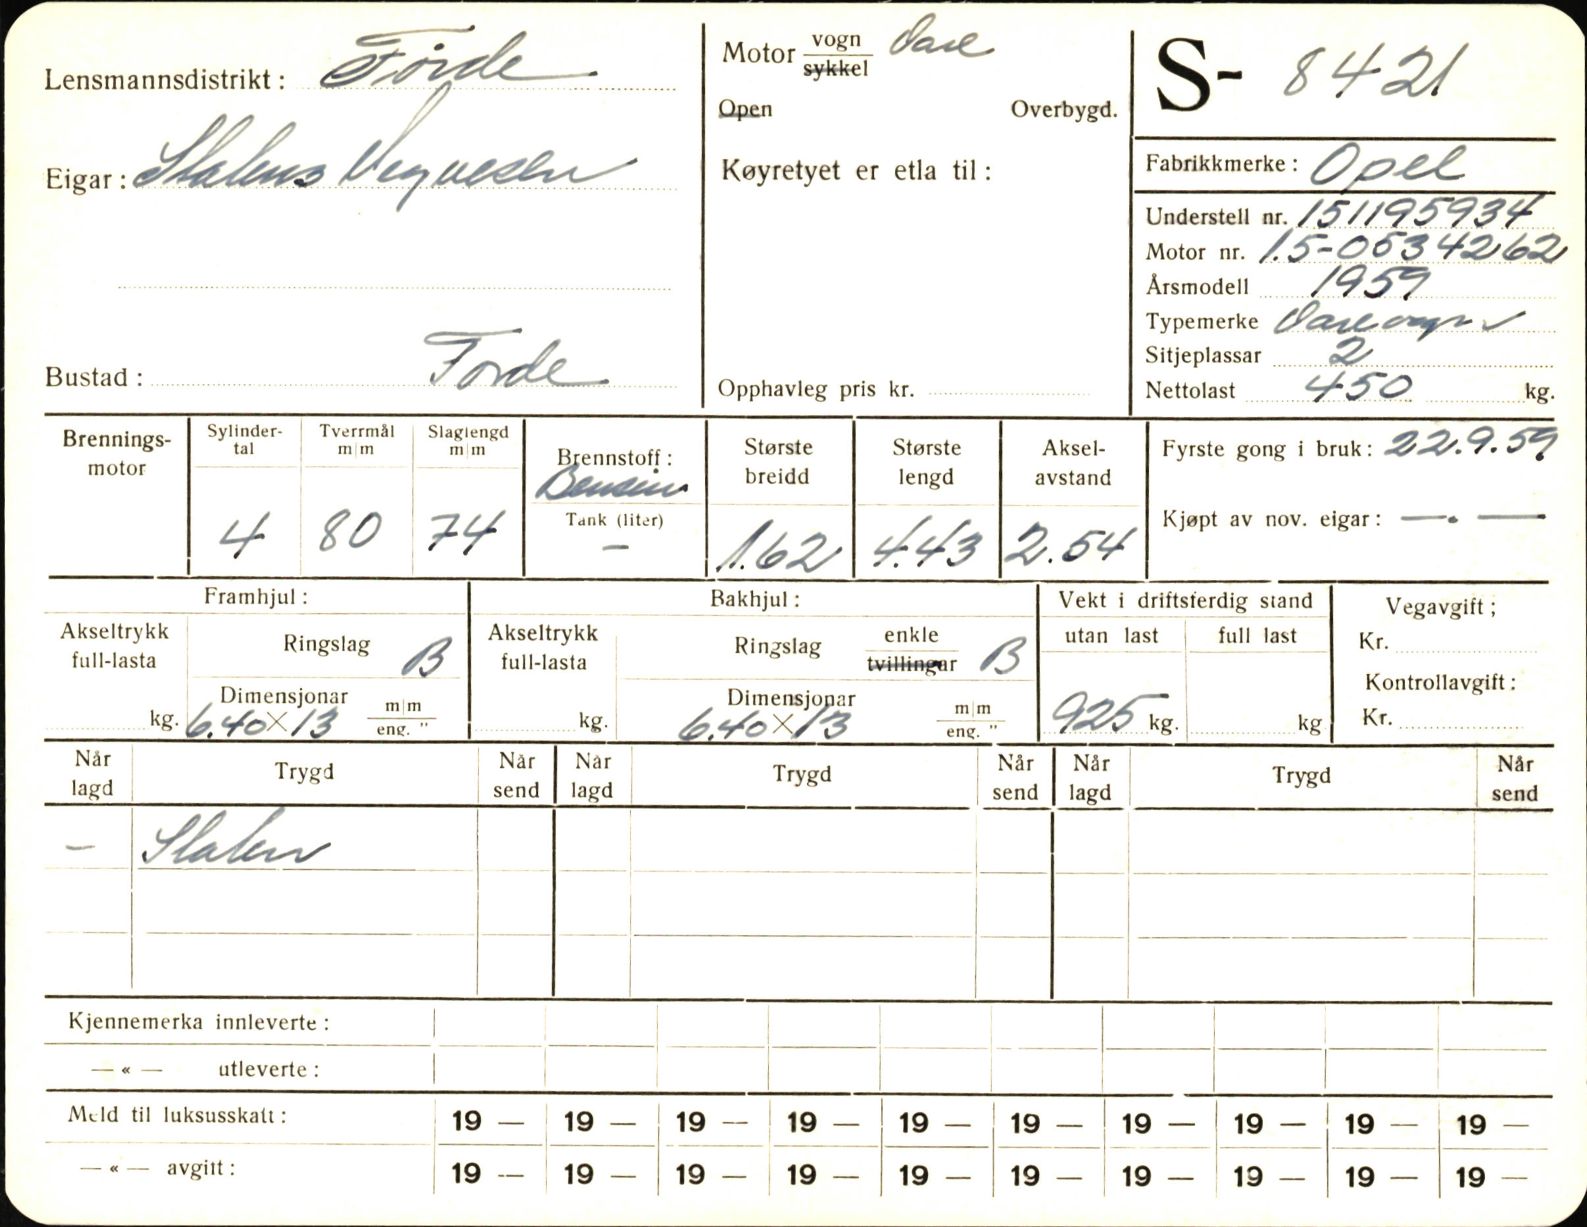 Lensmannsdistrikt: Førde
Eigar: Statens Vegvesen
Bustad: Førde
Motor vogn Vare
sykkel
Open Overbygd.
Køyretyet er etla til:
Opphavleg pris kr.
S- 8421
Fabrikkmerke: Opel
Understell nr. 151195934
Motor nr. 1.5-0534262
Årsmodell 1959
Typemerke Varevogn
Sitjeplassar 2
Nettolast 450 kg.
Brennings-
motor
Sylinder-
tal
4
Tverrmål
m|m
80
Slaglengd
m|m
74
Brennstoff:
Bensin
Tank (liter)
—
Største
breidd
1.62
Største
lengd
4.43
Aksel-
avstand
2.54
Fyrste gong i bruk: 22.9.59
Kjøpt av nov. eigar: —.—
Framhjul:
Akseltrykk
full-lasta
kg.
Ringslag B
Dimensjonar m|m
6.40 X 13 eng. "
Bakhjul:
Akseltrykk
full-lasta
kg.
Ringslag enkle B
tvillingar
Dimensjonar m|m
6.40 X 13 eng. "
Vekt i driftsferdig stand
utan last full last
925 kg. kg
Vegavgift;
Kr.
Kontrollavgift:
Kr.
Når lagd Trygd Når send Når lagd Trygd Når send Når lagd Trygd Når send
— Staten
Kjennemerka innleverte:
— « — utleverte:
Meld til luksusskatt: 19 — 19 — 19 — 19 — 19 — 19 — 19 — 19 — 19 — 19 —
— « — avgift: 19 — 19 — 19 — 19 — 19 — 19 — 19 — 19 — 19 — 19 —